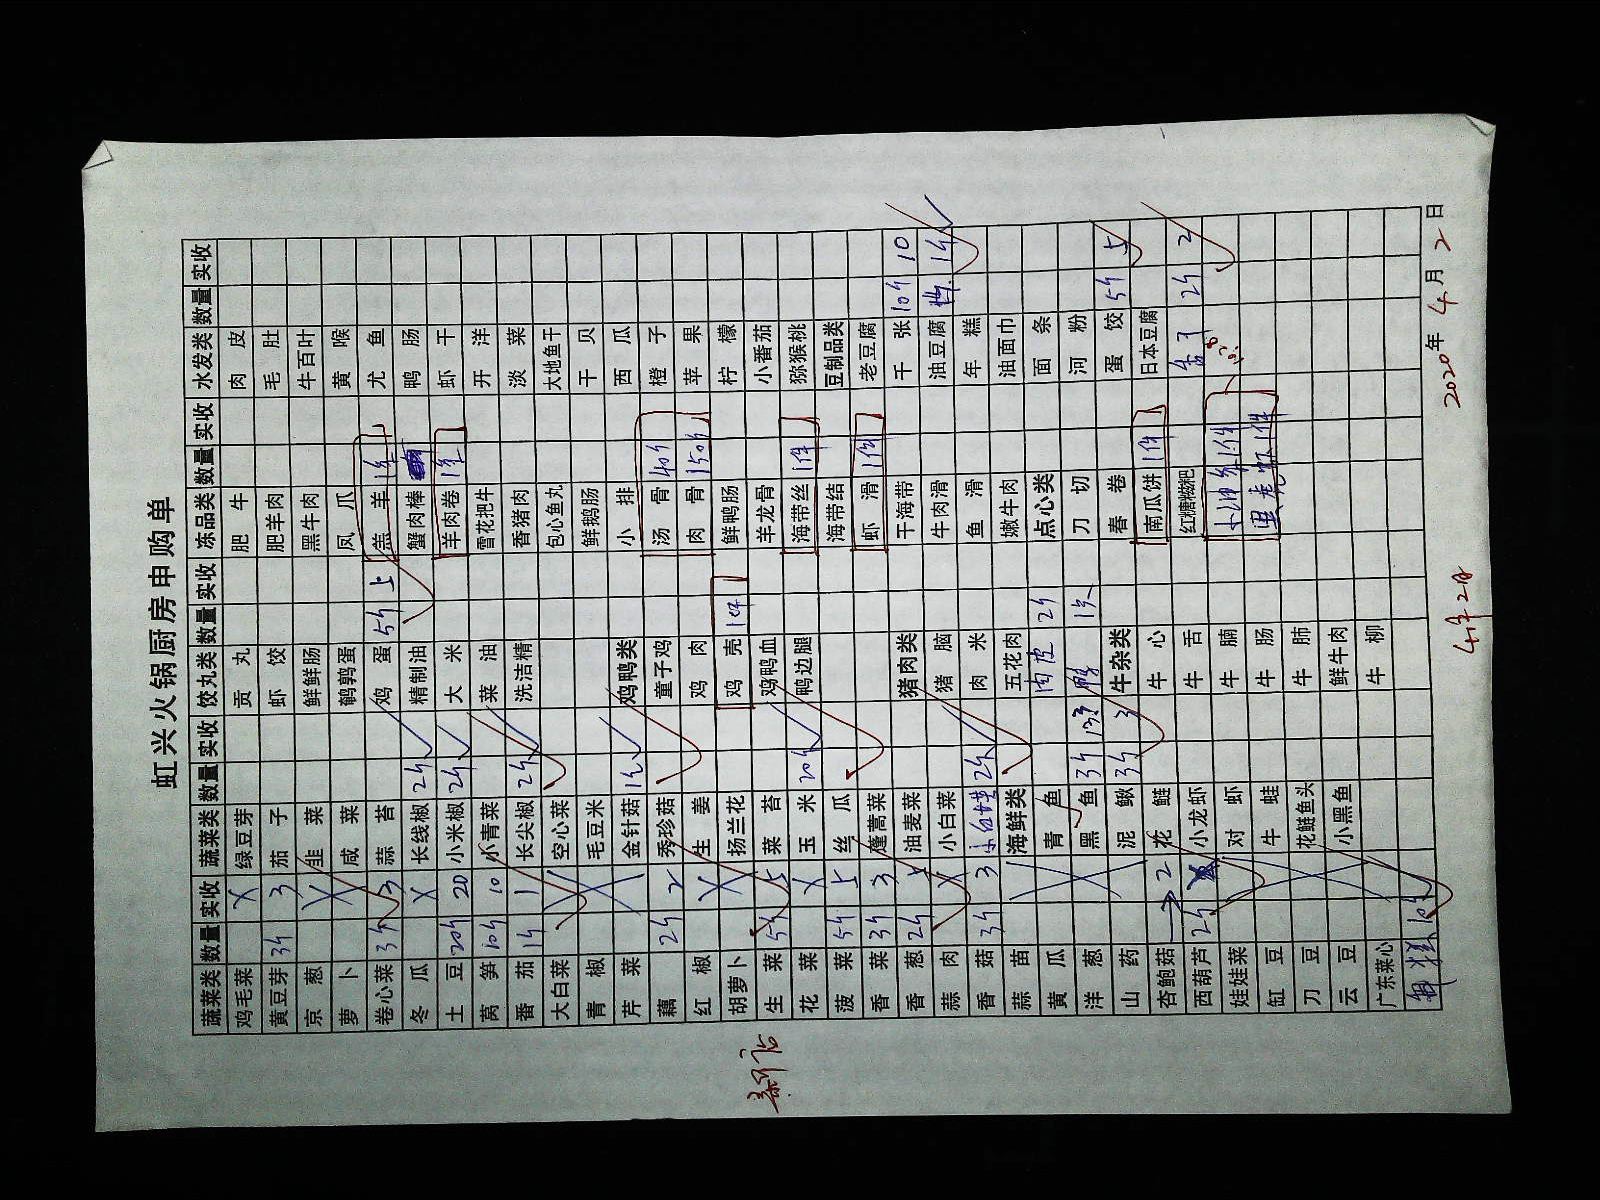 虹兴火锅厨房申购单
蔬菜类 数量 实收 蔬菜类 数量 实收 饺丸类 数量 实收 冻品类 数量 实收 水发类 数量 实收
鸡毛菜 X 绿豆芽 贡丸 肥牛 肉皮
黄豆芽 3斤 3 茄子 虾饺 肥羊肉 毛肚
京葱 韭菜 鲜鲜肠 黑牛肉 牛百叶
萝卜 咸菜 鹌鹑蛋 凤爪 黄喉
卷心菜 3斤 3 蒜苔 鸡蛋 5斤 上 羔羊 1件 尤鱼
冬瓜 X 长线椒 2斤 精制油 蟹肉棒 鸭肠
土豆 20斤 20 小米椒 2斤 大米 羊肉卷 1件 虾干
莴笋 10斤 10 小青菜 菜油 雪花把牛 开洋
番茄 1斤 1 长尖椒 2斤 洗洁精 香猪肉 淡菜
大白菜 空心菜 包心鱼丸 大地鱼干
青椒 毛豆米 鲜鹅肠 干贝
芹菜 金针菇 鸡鸭类 小排 西瓜
藕 2斤 2 秀珍菇 童子鸡 汤骨 40斤 橙子
红椒 X 生姜 鸡肉 肉骨 150斤 苹果
胡萝卜 扬兰花 鸡壳 1件 鲜鸭肠 柠檬
生菜 5斤 5 菜苔 鸡鸭血 羊龙骨 小番茄
花菜 X 玉米 20斤 鸭边腿 海带丝 1件 猕猴桃
菠菜 5斤 5 丝瓜 海带结 豆制品类
香菜 3斤 3 蓬蒿菜 虾滑 1件 老豆腐
香葱 2斤 油麦菜 猪肉类 干海带 千张 10斤 10
蒜肉 X 小白菜 猪脑 牛肉滑 油豆腐 1件
香菇 3斤 3 2斤 肉米 鱼滑 年糕
蒜苗 海鲜类 五花肉 嫩牛肉 油面巾
黄瓜 青鱼 肉皮 2斤 点心类 面条
洋葱 黑鱼 3斤 鸭 刀切 河粉
山药 泥鳅 3斤 3 牛杂类 春卷 蛋饺 5斤 5
杏鲍菇 2 花鲢 牛心 南瓜饼 1件 日本豆腐
西葫芦 2斤 小龙虾 牛舌 红糖糍粑 2斤 2
娃娃菜 对虾 牛腩 小油条 1件
缸豆 牛蛙 牛肠 黑虎虾 1件
刀豆 花鲢鱼头 牛肺
云豆 小黑鱼 鲜牛肉
广东菜心 牛柳
10斤
2020年4月2日
4月2日